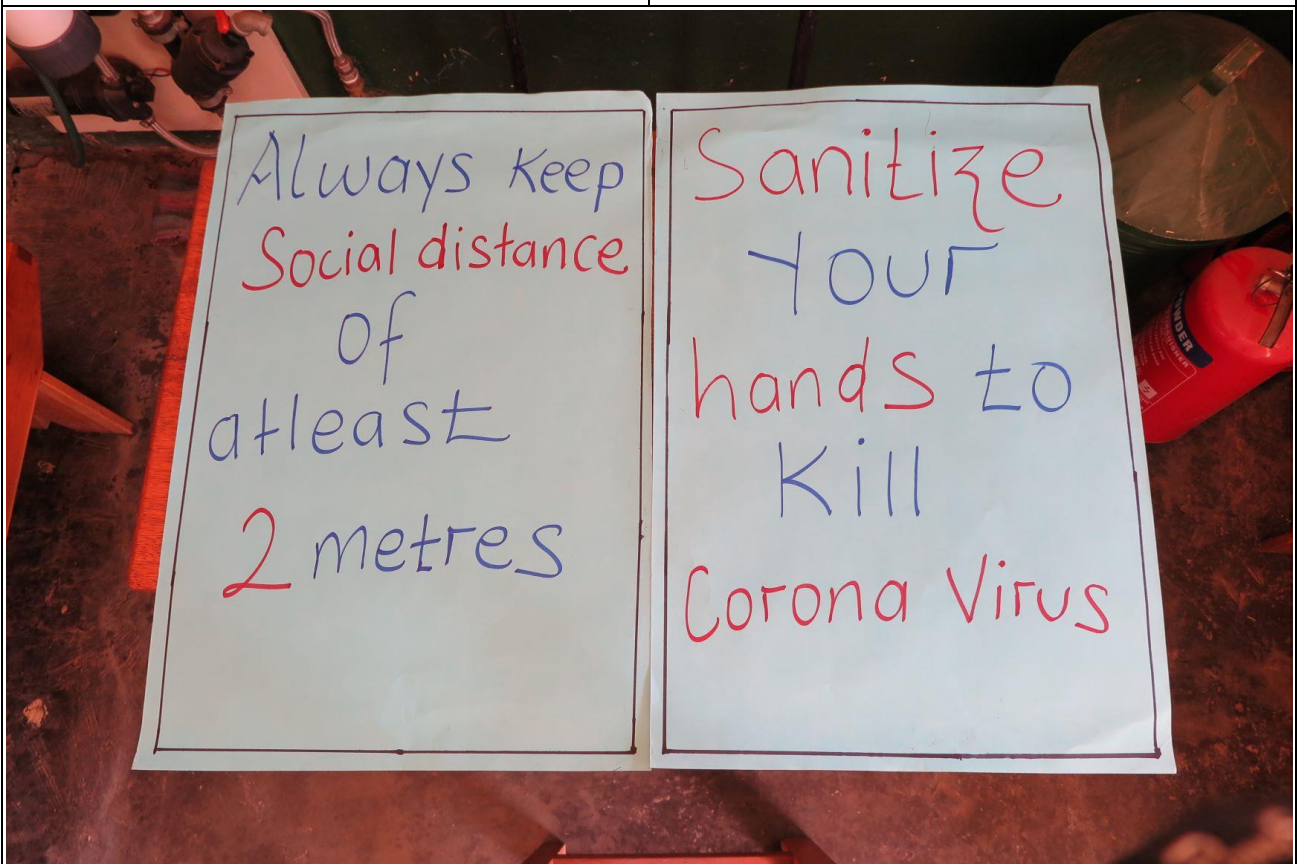 Always Keep
Social distance
of
atleast
2 metres
Sanitize
Your
hands to
Kill
Corona Virus
POWDER